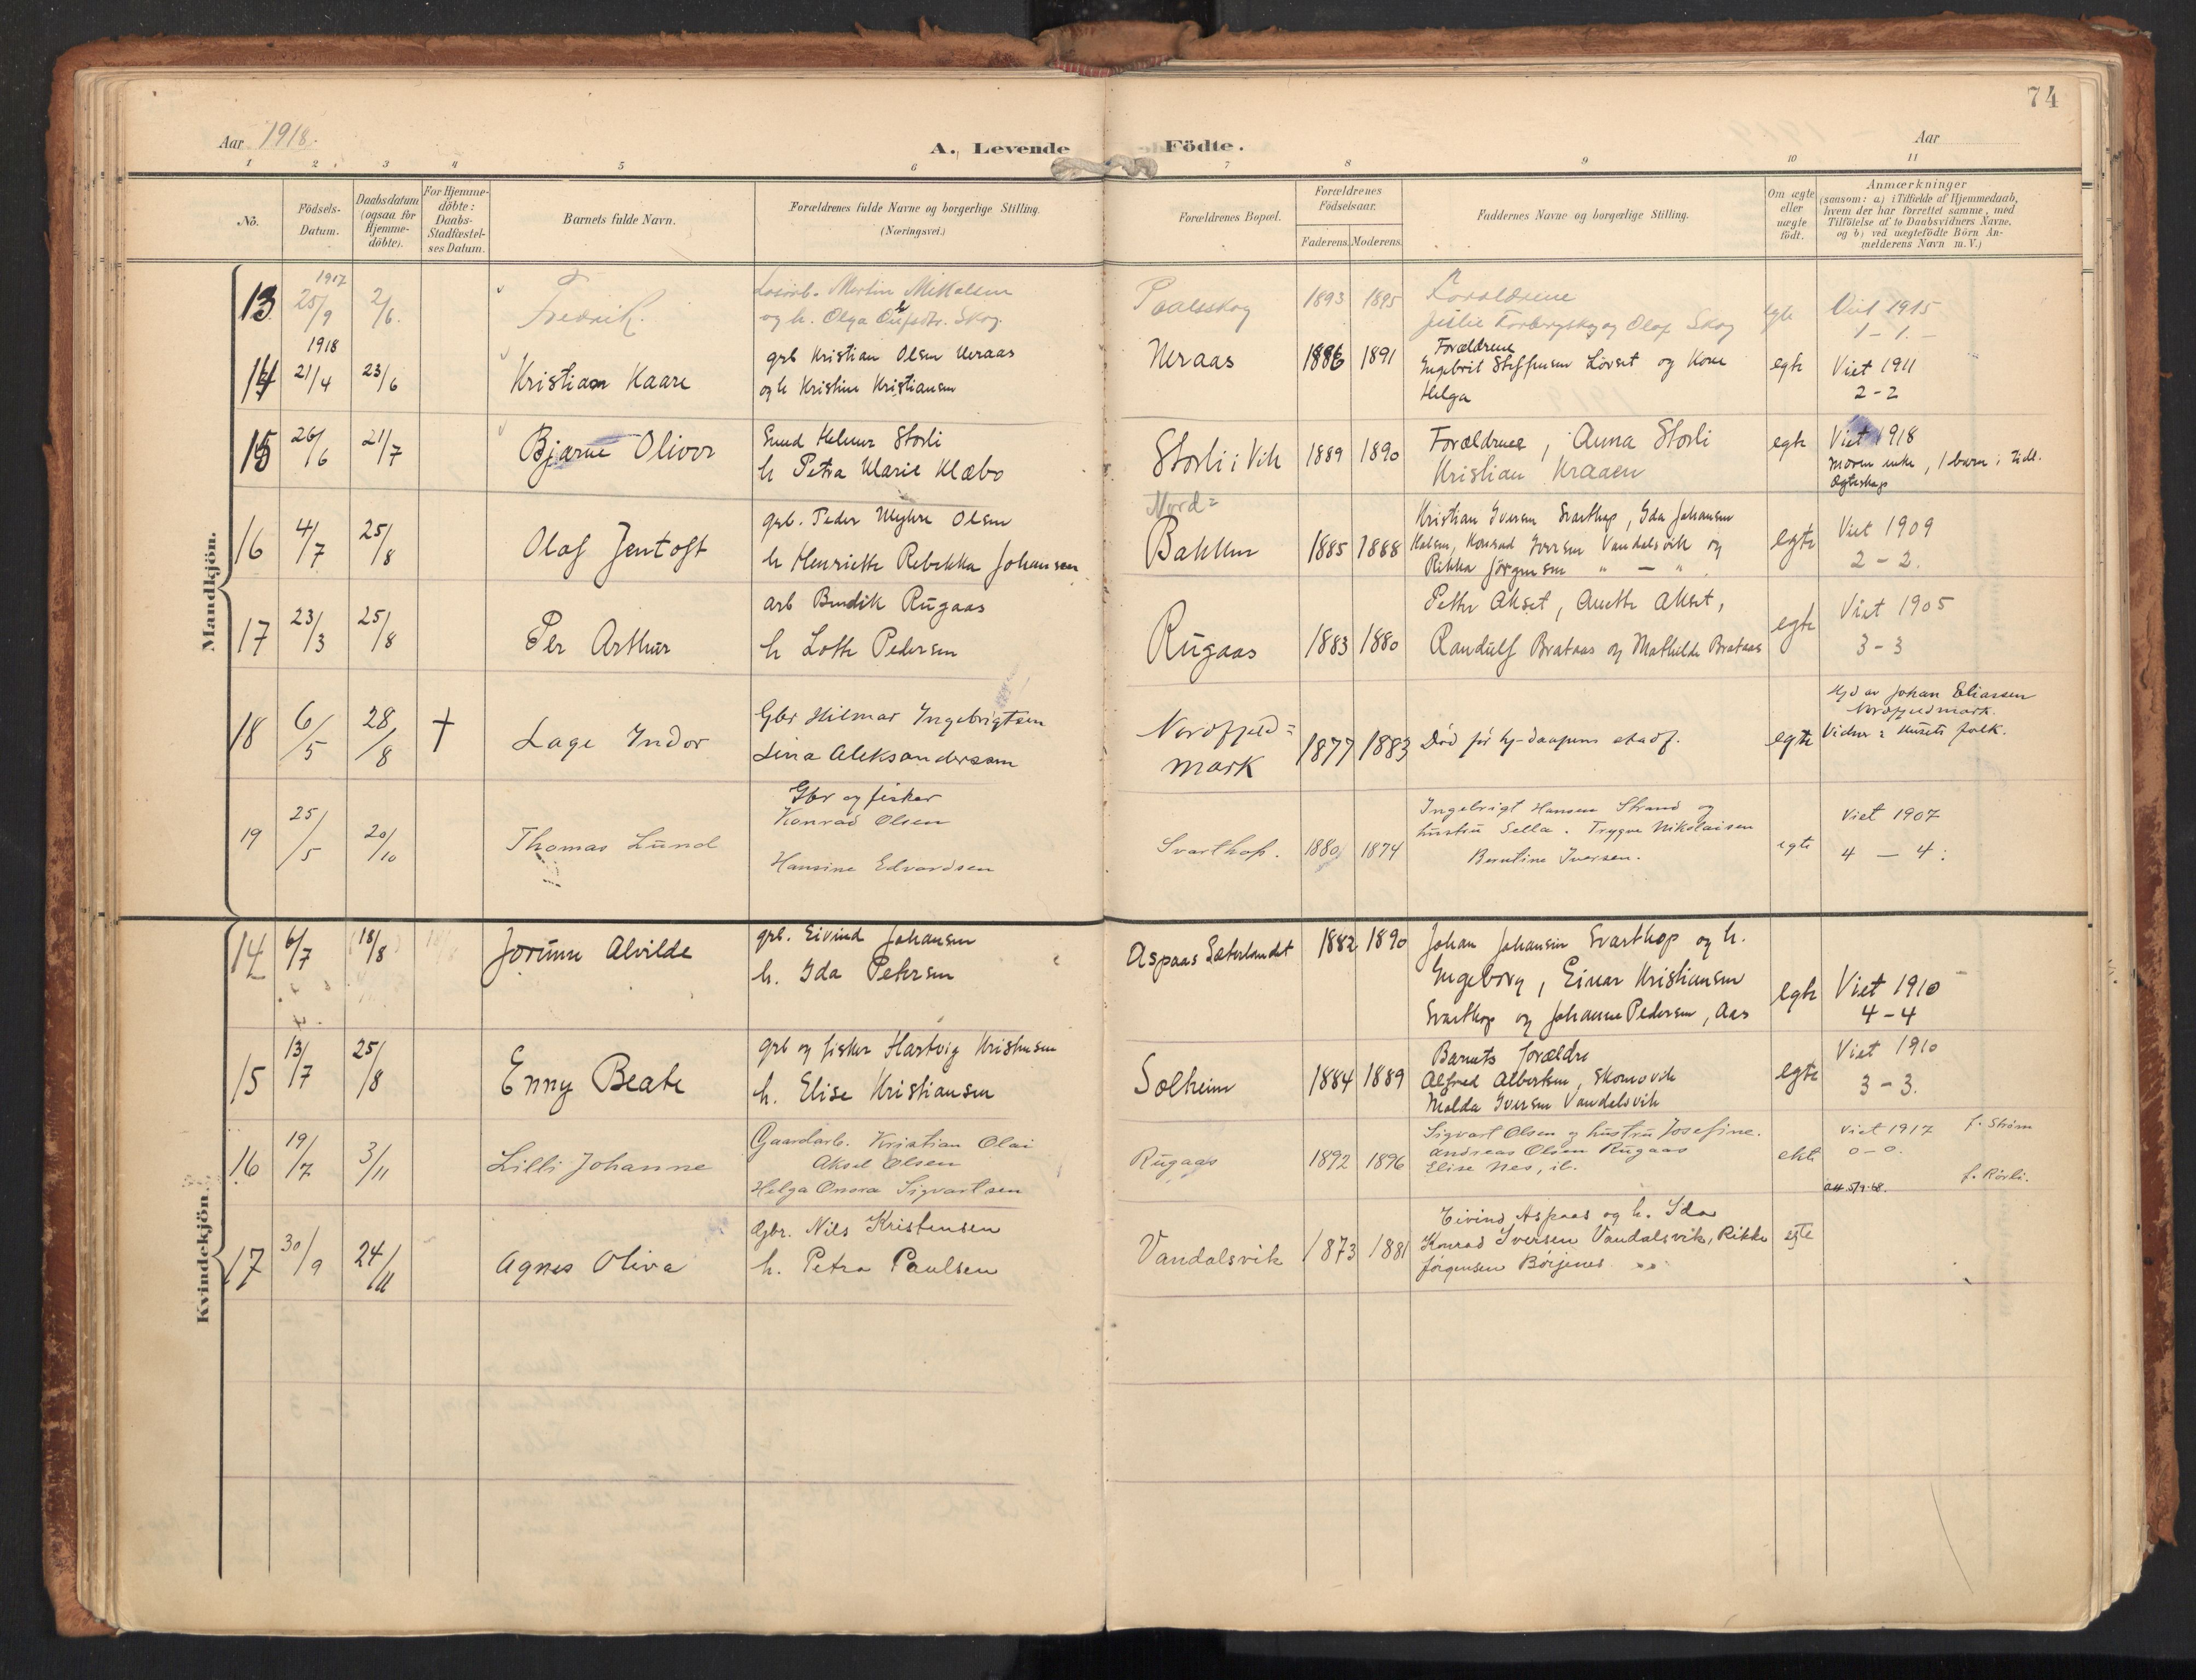 74
Aar 1918.
A. Levende Födte.
Aar
1 2 3 4 5 6 7 8 9 10 11
No.
Födsels-
Datum.
Daabsdatum
(ogsaa for
Hjemme-
döbte).
For Hjemme-
döbte:
Daabs-
Stadfæstel-
ses Datum.
Barnets fulde Navn.
Forældrenes fulde Navne og borgerlige Stilling.
(Næringsvei.)
Forældrenes Bopæl.
Forældrenes
Födselsaar.
Faderens. Moderens.
Faddernes Navne og borgerlige Stilling.
Om ægte
eller
uægte
födt.
Anmærkninger
(saasom: a) i Tilfælde af Hjemmedaab,
hvem der har forrettet samme, med
Tilföielse af to Daabsvidners Navne.
og b) ved uægtefödte Börn An-
melderens Navn m. V.)
Mandkjön.
13 1917 25/9 2/6. Fredrik.
Martin Mikalsen
og h. Olga Skog.
Paalsskog 1893 1895
Forældrene
og Olaf Skog
egte
Viet 1915
1 - 1. -
14 1918 21/4 23/6 Kristian Kaare
grb Kristian Olsen Neraas
og h Kristine Kristiansen
Neraas 1886 1891
Forældrene
Ingebrit Steffensen Lövset og Kone
Helga
egte
Viet 1911
2-2
15 26/6 21/7 Bjarne Oliver
Helmer Storli
h Petra Marie Klæbo
Storli i Vik 1889 1890
Forældrene, Anna Storli
Kristian Kraaen
egte
Viet 1918
Moren enke, 1 barn i tidl.
Ægteskap
16 4/7 25/8 Olaf Jentoft
grb. Peder Myhre Olsen
h Henriette Rebekka Johansen
Nord=
Bakken 1885 1888
Kristian Iversen Svarthop, Ida Johansen
Konrad Iversen Vandalsvik og
Rikka Jörgensen " — "
egte
Viet 1909
2 - 2.
17 23/3 25/8 Per Arthur
arb Bendik Rugaas
h Lotte Pedersen
Rugaas 1883 1880
Petter Akset, Anette Akset,
Randulf Brataas og Mathilde Brataas
egte
Viet 1905
3 - 3
18 6/5 28/8 † Lage Indor
Gbr Hilmar Ingebrigtsen
Lina Aleksandersen
Nordfjeld=
mark 1877 1883
Död för hj-daapens stadf.
egte
Hjd av Johan Eliassen
Nordfjeldmark.
Vidner: Husets folk.
19 25/5 20/10 Thomas Lund
Gbr og fisker
Konrad Olsen
Hansine Edvardsen
Svarthop. 1880 1874
Ingebrigt Hansen Strand og
hustru Sella. Trygve Nikolaisen
Berntine Iversen.
egte
Viet 1907
4 — 4:
Kvindekjön.
14 6/7 (18/8) 18/8 Jorunn Alvilde
grb. Eivind Johansen
h. Ida Petersen
Aspaas Sæterlandet 1882 1890
Johan Johansen Svarthop og h.
Ingeborg, Einar Kristiansen
Svarthop og Johanne Pedersen, Aas
egte
Viet 1910
4-4
15 13/7 25/8 Enny Beate
grb og fisker Hartvig Kristensen
h. Elise Kristiansen
Solheim 1884 1889
Barnets forældre
Alfred Albertsen, Skomovik
Malda Iversen Vandelsvik
egte
Viet 1910
3 - 3.
16 19/7 3/11 Lilli Johanne
Gaardarb. Kristian Olai
Aksel Olsen
Helga Onora Sigvartsen
Rugaas 1892 1896
Sigvart Olsen og hustru Josefine.
Andreas Olsen Rugaas
Elise Nes, il.
ekte
viet 1917 f. Ström
0-0.
att 5/9.68. f. Rörli.
17 30/9 24/11 Agnes Oliva
Gbr. Nils Kristensen
h. Petra Paulsen
Vandalsvik 1873 1881
Eivind Aspaas og h. Ida
Konrad Iversen Vandalsvik, Rikke
Jörgensen Börjenes "
egte